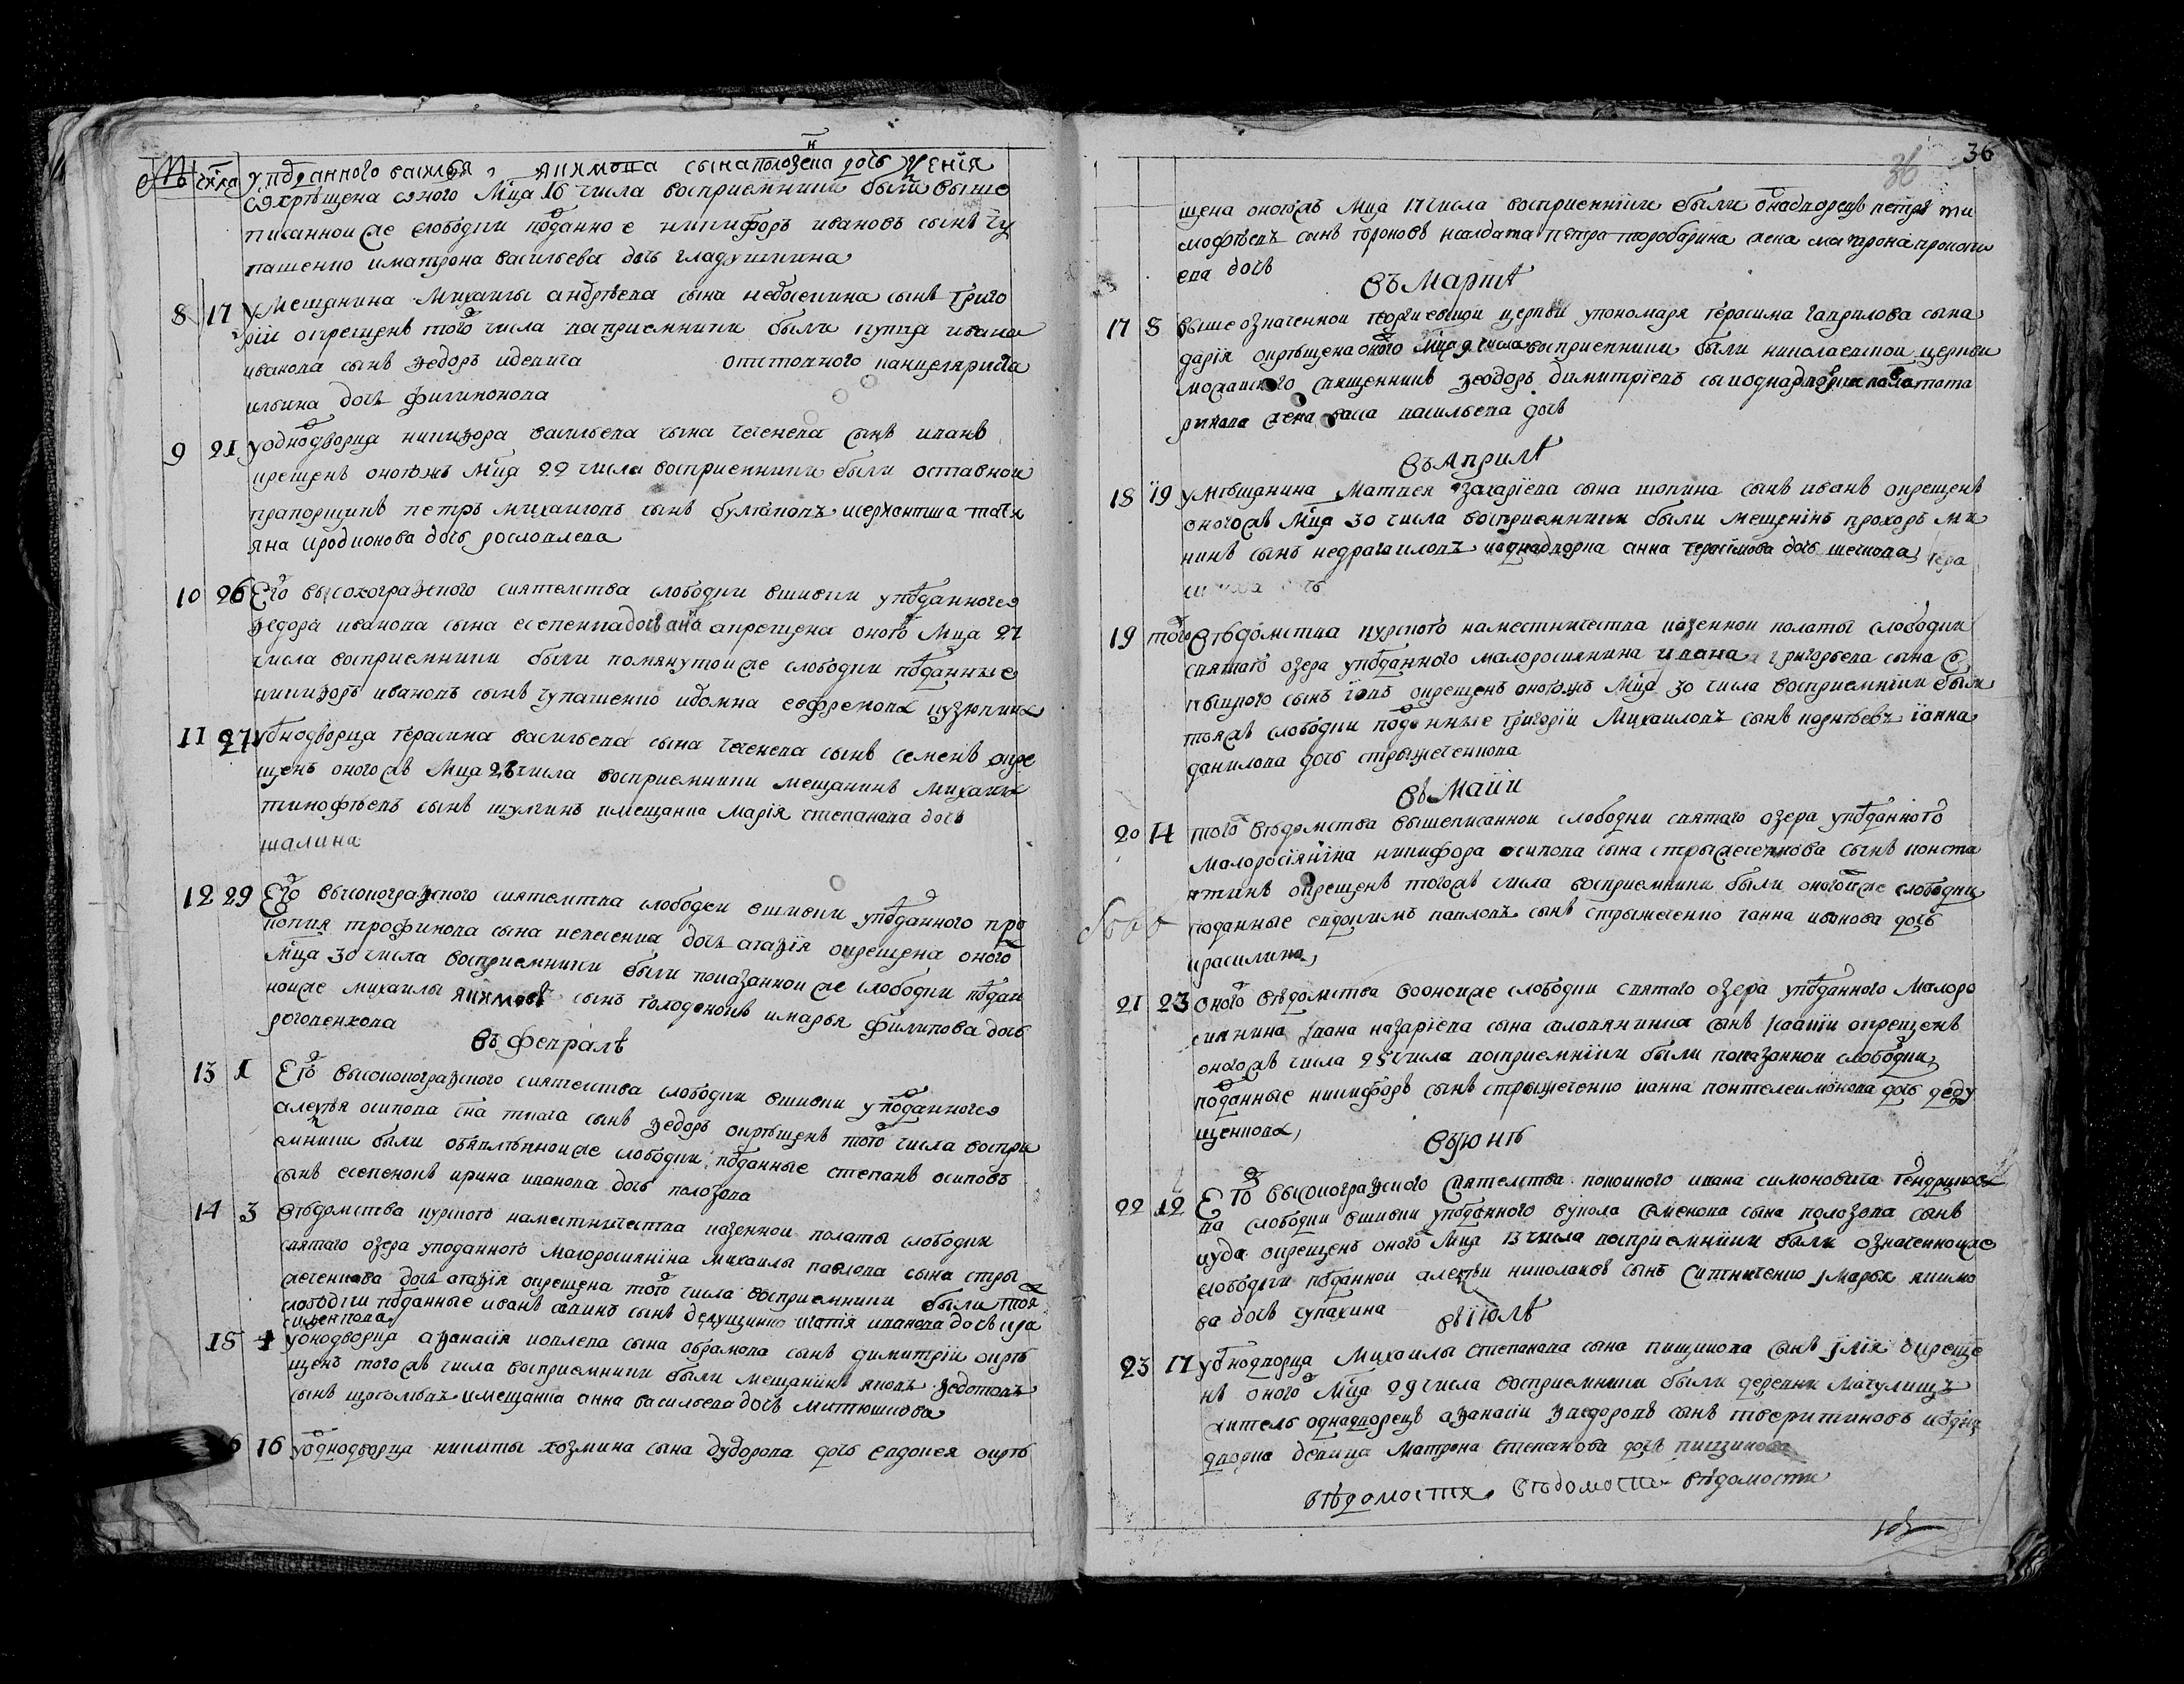 № числа уподанного василья якимова сына полозова дочь ксенія
окрѣщена оного мца 16 числа восприемники были выше
писанной же слободки поданно е никифоръ ивановъ сынъ чу
пашенко и матрона васильева дочь гладушкина
8 17 у мещанина михаилы андрѣева сына небосенина сынъ григо
рій окрещенъ того числа восприемники были купца ивана
иванова сынъ федоръ и девица отстовного канцеляриста
ильина дочь филимонова
9 21 у однодворца никифора васильева сына чегенева сынъ иванъ
крещенъ оногожъ мца 22 числа восприемники были оставной
прапорщикъ петръ михаиловъ сынъ булгаковъ и сержантша татья
яна иродионова дочь рословлева
10 26 его высокографского сиятелства слободки вшивки уподанного
федора иванова сына есепенка дочь анна окрещена оного мца 27
числа восприемники были помянутой же слободки поданные
никифоръ ивановъ сынъ чупашенко и домна евфремова кузюкина
11 27 уоднодворца герасима васильева сына чегенева сынъ семенъ окре
щенъ оногожъ мца 28 числа восприемники мещанинъ михаилъ
тимофѣевъ сынъ шулгинъ и мещанка марія степанова дочь
шалина
12 29 его высокографского сиятелства слободки вшивки уподанного про
копия трофимова сына дочь агафія окрещена оного
мца 30 числа восприемники были показанной же слободки подан
ной же михаилы якимовъ сынъ голоденокъ и марья филипова дочь
роговенкова
въ февралѣ
13 1 его высокографского сиятелства слободки вшивки уподанного
алексѣя осипова сна ткача сынъ федоръ окрѣщенъ того числа воспри
емники были обявлѣнной же слободки поданные степанъ осиповъ
сынъ есепенокъ ирина иванова дочь полозова
14 3 вѣдомства курского намѣстничества казенной полаты слободки
святаго озера уподанного малоросиянина михаилы павлова сына стры
жеченкова дочь агафія окрещена того числа восприемники были тоя
слободки поданные иванъ савинъ сынъ дедущенко иватія иванова дочь кра
силникова
15 4 уоднодворца афанасия иовлева сына абрамова сынъ димитрій окрѣ
щенъ тогожъ числа восприемники были мещанинъ яковъ федотовъ
сынъ щеголевъ и мещанка анна васильева дочь митюшкова
16 уоднодворца никиты козмина сына дудорова дочь евдокея окрѣ
36
щена оногожъ мца 17 числа восприемники были однадворецъ петръ ти
мофѣевъ сынъ вороновъ и салдата петра воробарина жена матрона прокопи
ева дочь
въ мартѣ
17 8 выше означенной георгиевской церкви упономаря герасима гаврилова сына
дарія окрѣщена оного мца 9 числа восприемники были николаевской церкви
можайского священникъ феодоръ димитріевъ сынъ
рикова жена васса васильева дочь
въ априлѣ
18 19 у мѣщанина матвея захаріева сына шопина сынъ иванъ окрещенъ
оногожъ мца 30 числа восприемники были мещенінъ прохоръ ми
нинъ сынъ недрагаиловъ и однадворка анна герасімова дочь шечкова гера
19 того вѣдомства курского намѣстничества казенной полаты слободки
святаго озера уподанного малоросиянина ивана григорьева сына
сынъ іовъ окрещенъ оногожъ мца 30 числа восприемники были
тояжъ слободки поданные григорій михаиловъ сынъ корнѣевъ іанна
данилова дочь стрыжеченкова
въ маіи
20 14 того вѣдомства вышеписанной слободки святаго озера уподанного
малоросіянина никифора осипова сына стрыжеченкова сынъ конста
нтинъ окрещенъ тогожъ числа восприемники были оной же слободки
поданные евдокимъ павловъ сынъ стрыжеченко ганна иванова дочь
красилина
21 23 оного вѣдомства воонойже слободки святаго озера уподанного малоро
сиянина ивана назаріева сына сынъ исакій окрещенъ
оногожъ числа 25 числа восприемники были показанной слободки
поданные никифоръ сынъ стрыжеченко іанна понтелеимонова дочь деду
щенкова
въ іюнѣ
22 12 его высокографского сиятелства покойного ивана симоновича гендрикова
на слободки вшивки уподанного вукола семенова сына полозова сынъ
иуда окрещенъ оного мца 13 числа восприемники были означенной же
слободки поданной алексѣй николаевъ сынъ ситниченко марья якимо
ва дочь чупахина
въ іюлѣ
23 17 уоднодворца михаилы степанова сына пищикова сынъ илія окреще
нъ оного мца 29 числа восприемники были деревни мачулищъ
житель однадворецъ афанасіи феодоровъ сынъ тверитиновъ и одна
дворка девица матрона степанова дочь пищикова
вѣдомостя вѣдомости вѣдомости